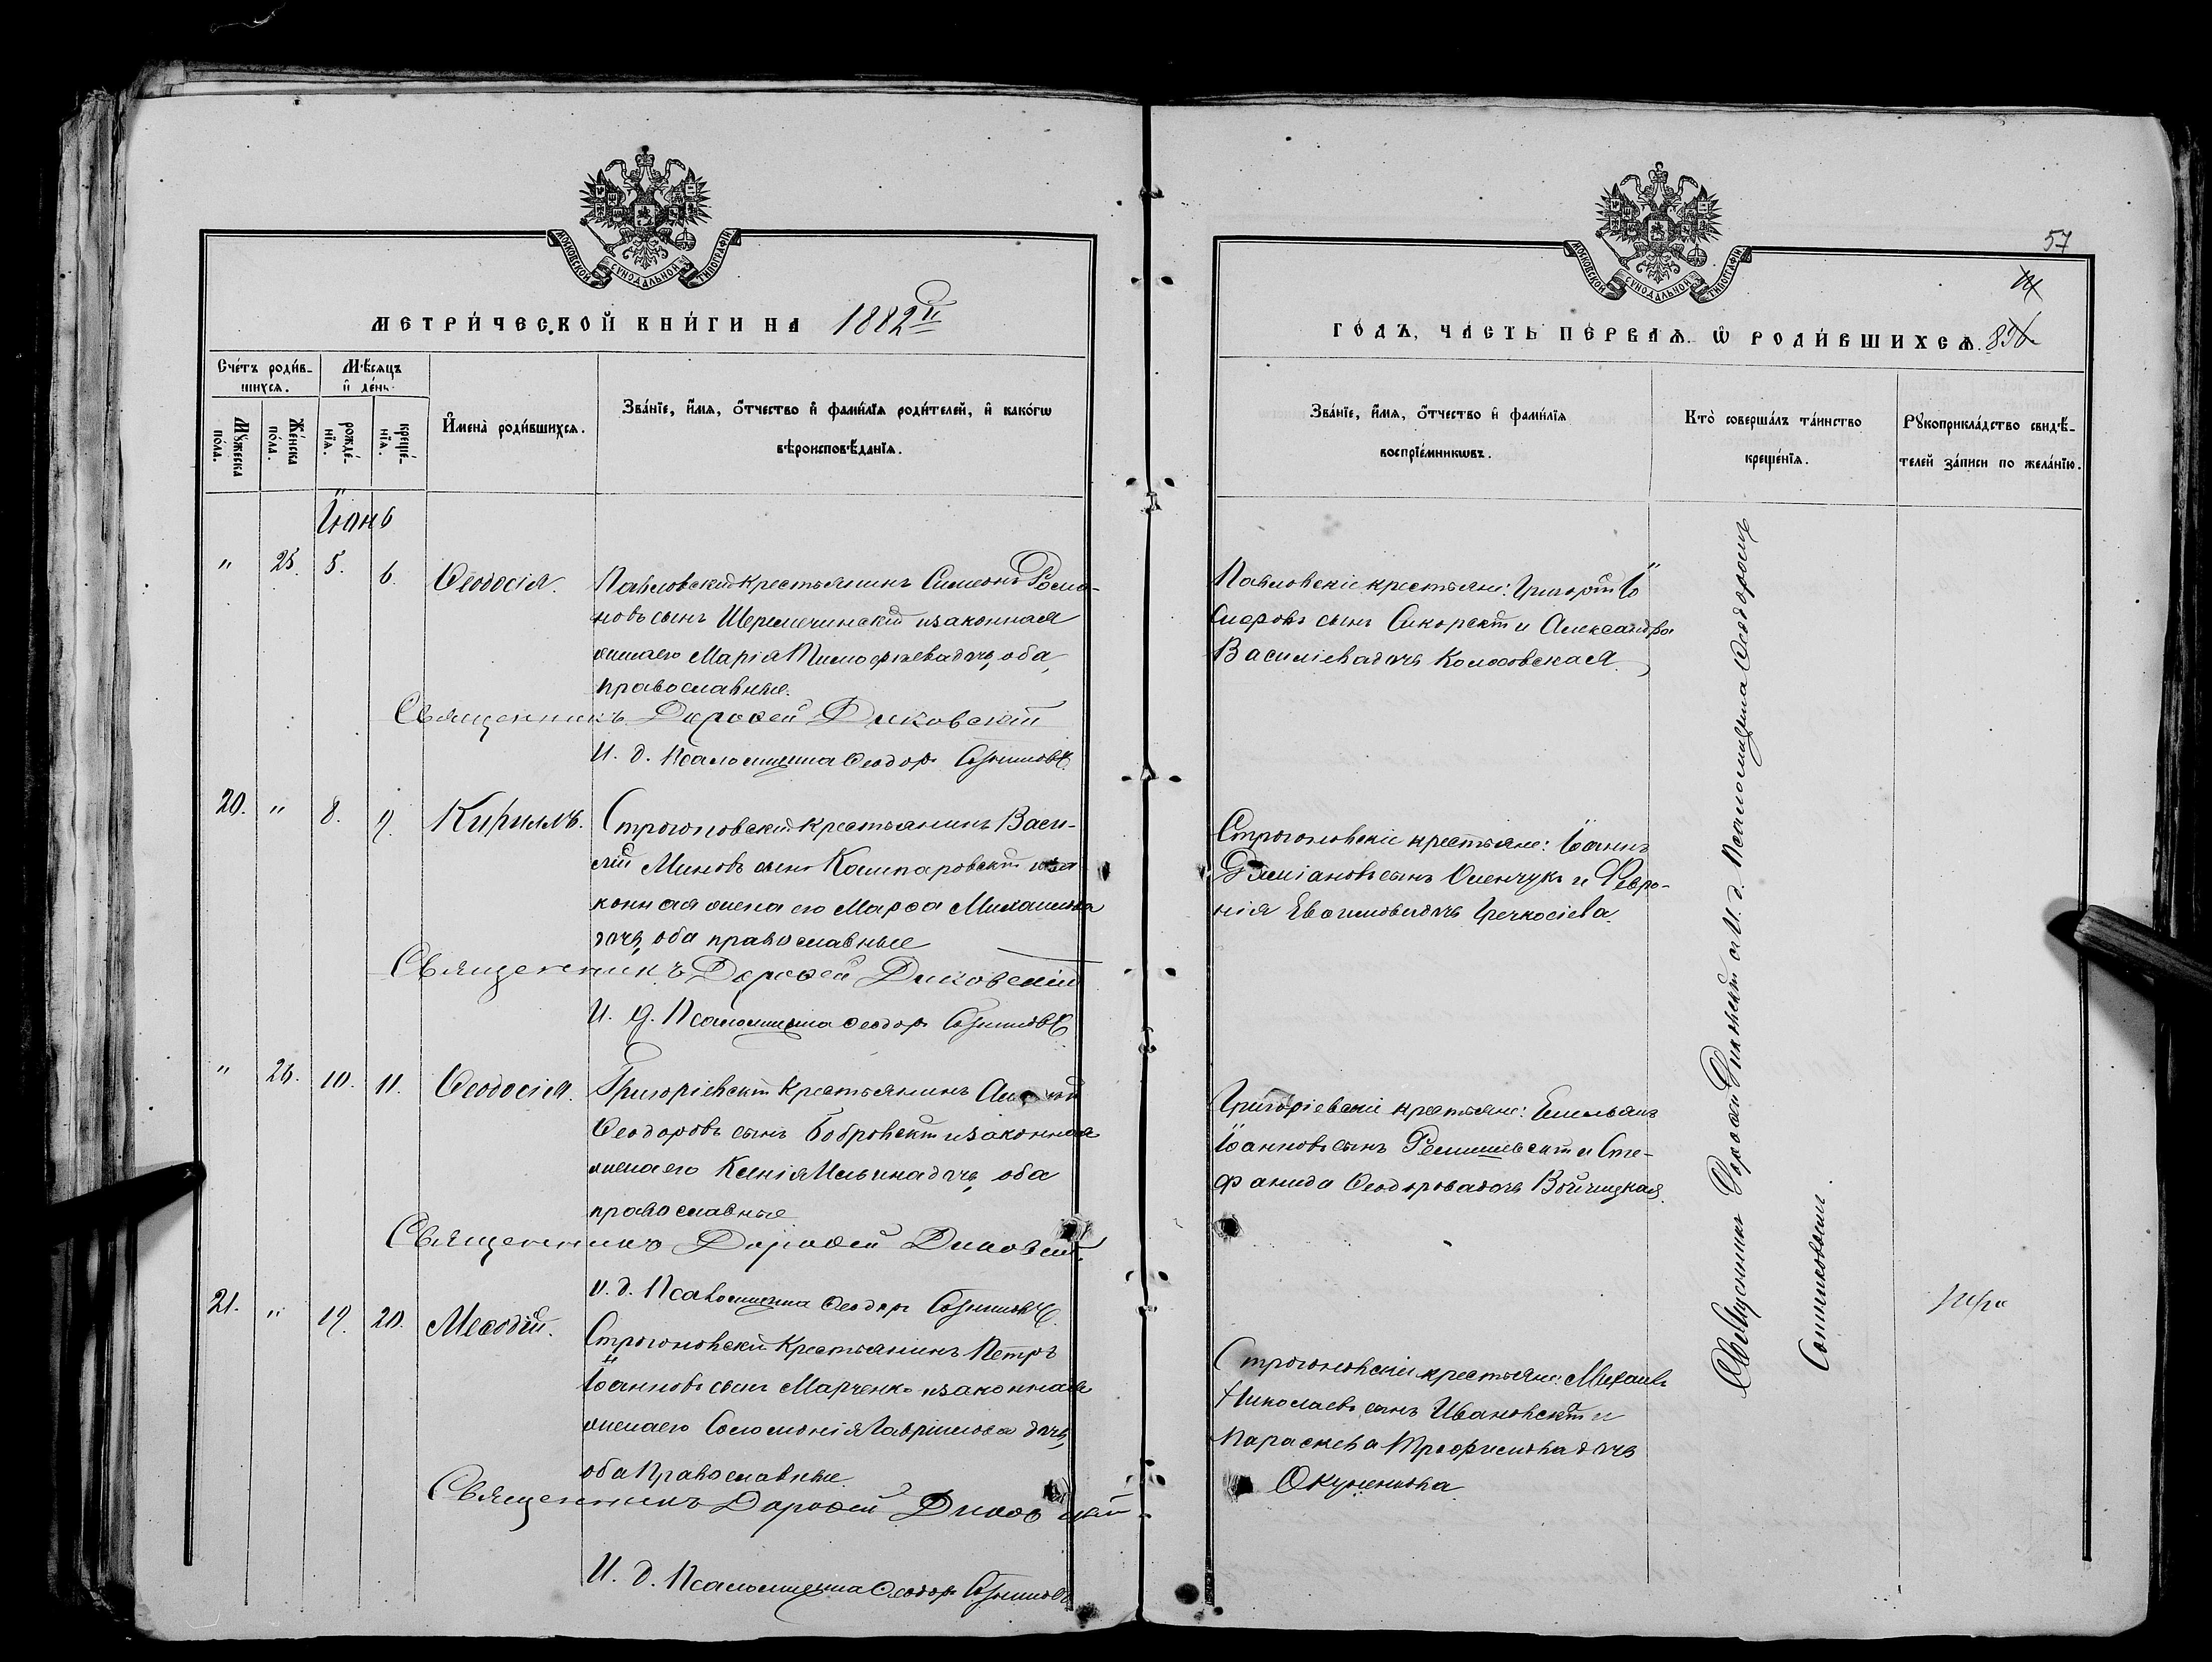 МОСКОВСКОЙ СУНОДАЛЬНОЙ ТИПОГРАФІИ
МЕТРИ́ЧЕСКОЙ КНИ́ГИ НА 1882й
Сче́тъ роди́в-
шихся.
Мѣсяцъ
и де́нь.
Мꙋжеска по́ла.
Же́нска по́ла.
рожде́-
нїя.
креще́-
нїя.
И҆мена̀ роди́вшихся.
Зва́нїе, и҆́мя, ѻ҆́тчество и҆ фами́лїя роди́телей, и҆ како́гѡ
вѣроисповѣ́данїя.
Іюнь
" 25. 5. 6. Ѳеодосія.
Павловскій крестьянинъ Симеонъ Рома-
новъ сынъ Шереметинскій и законная
жена его Марія Тимофѣева дочь, оба
православные.
Священникъ Дороѳей Диковскій
И. д. Псаломщика Ѳеодоръ
20. " 8. 9. Кириллъ.
Строгоновскій крестьянинъ Васи-
лій Миновъ сынъ Каспаровскій и за
конная жена его Марѳа Михайлова
дочь, оба православные
Священникъ Дороѳей Диковскій
И. д. Псаломщика Ѳеодоръ
" 26. 10. 11. Ѳеодосія.
Григоріевскій крестьянинъ
Ѳеодоровъ сынъ Бобровскій и законная
жена его Ксенія Ильина дочь, оба
православные
Священникъ Дороѳей Диковскій
И. д. Псаломщика Ѳеодоръ
21. " 19. 20. Меѳодій.
Строгоновскій крестьянинъ Петръ
Іоанновъ сынъ Марченко и законная
жена его Соломонія Гавріилова дочь,
оба Православные
Священникъ Дороѳей Диковскій
И. д. Псаломщика Ѳеодоръ
МОСКОВСКОЙ СУНОДАЛЬНОЙ ТИПОГРАФІИ
57
ГО́ДЪ, ЧА́СТЬ ПЕ́РВАЯ. Ѽ РОДИ́ВШИХСЯ.
Зва́нїе, и҆́мя, ѻ҆́тчество и҆ фами́лїя
воспрїе́мникѡвъ.
Кто̀ соверша́лъ та́инство
креще́нїя.
Рꙋкоприкла́дство свидѣ́-
телей за́писи по жела́нїю.
Павловскіе крестьяне: Григорій Іо
сифовъ сынъ Сикорскій и Александра
Василіева дочь Колосовская.
Строгоновскіе крестьяне: Іоаннъ
Даміановъ сынъ Оленчукъ и Февро-
нія Евѳимова дочь Гречкосіева.
Григоріевскіе крестьяне: Емельянъ
Іоанновъ сынъ и Сте-
фанида Ѳеодорова дочь Войчицкая.
Строгоновскіе крестьяне: Михаилъ
Николаевъ сынъ Ивановскій и
Параскева Трофимова дочь
Окуненкова
Священникъ Дороѳей Диковскій и И. д. Псаломщика Ѳеодоръ